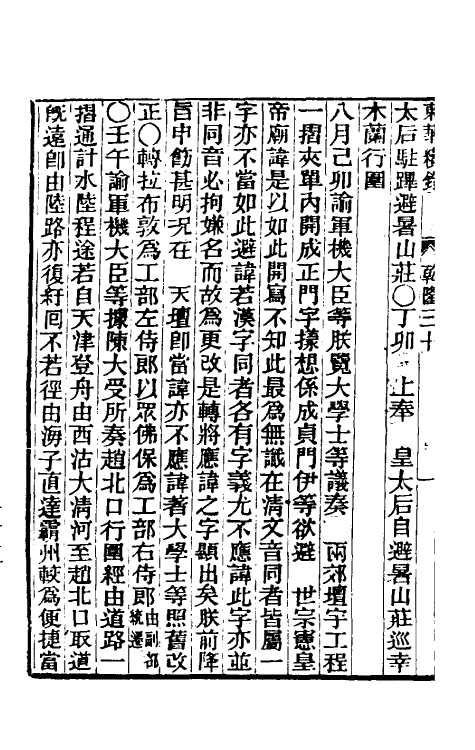 東華續錄 乾隆三十
太后駐蹕避暑山莊〇丁卯 上奉 皇太后自避暑山莊巡幸
木蘭行圍
八月己卯諭軍機大臣等朕覽大學士等議奏 兩郊壇宇工程
一摺夾單內開成正門字樣想係成貞門伊等欲避 世宗憲皇
帝廟諱是以如此開寫不知此最爲無識在清文音同者皆屬一
字亦不當如此避諱若漢字同者各有字義尤不應諱此字亦並
非同音必拘嫌名而故爲更改是轉將應諱之字顯出矣朕前降
旨申飭甚明况在 天壇卽當諱亦不應諱著大學士等照舊改
正〇轉拉布敦爲工部左侍郎以眾佛保爲工部右侍郎由副都統遷
〇壬午諭軍機大臣等據陳大受所奏趙北口行圍經由道路一
摺通計水陸程途若自天津登舟由西沽大清河至趙北口取道
旣遠卽由陸路亦復紆囘不若徑由海子直達霸州較爲便捷當